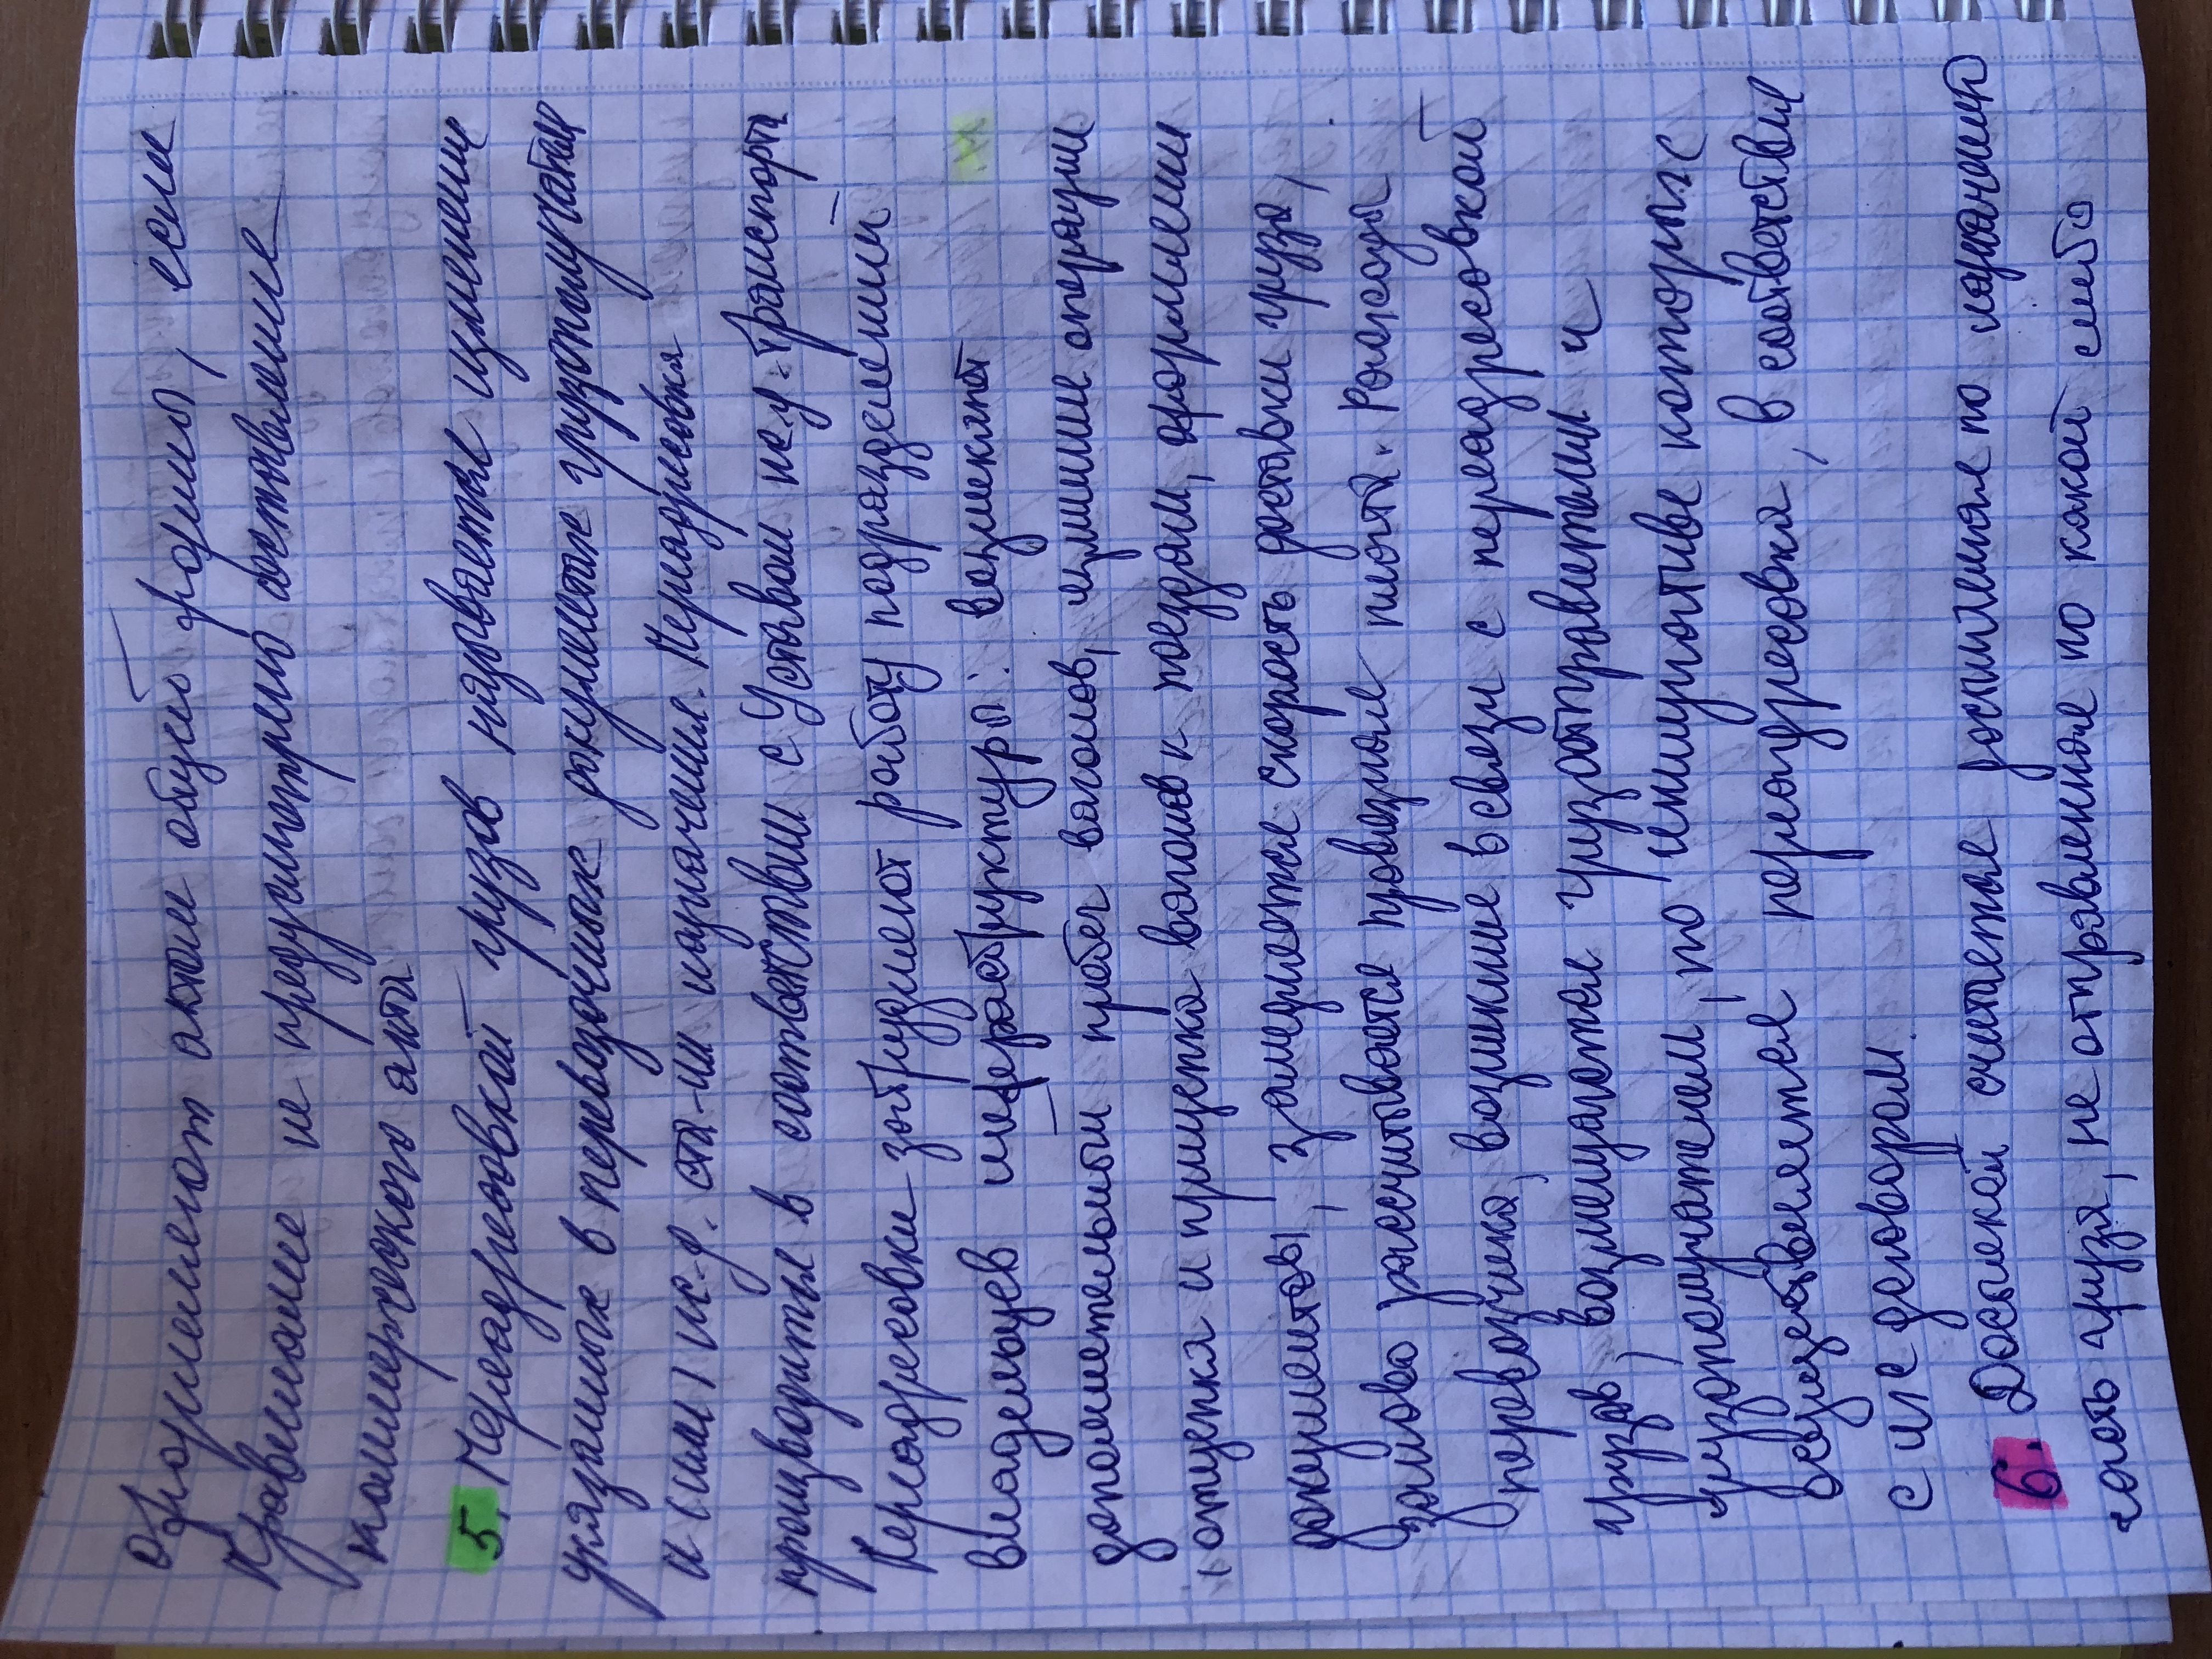 оформляют актом общей формы, если
Правилами не предусмотрено составление
коммерческого акта
5. Переадресовкой грузов называется изменение
указанных в перевозочных документах грузополучателя
и (или) ж.д. ст-ии назначения. Переадресовка
производится в соответствии с Уставом ж.д. транспорта
Переадресовки затрудняют работу подразделений
владельцев инфраструктуры: возникают
дополнительный пробег вагонов, излишние операции
(отцепка и прицепка вагонов к поездам, оформлении
документов), замедляется скорость доставки груза,
заново рассчитывается провозная плата. Расходы
перевозчика, возникшие в связи с переадресовкой
грузов, возмещаются грузоотправителем и
грузополучателем, по инициативе которых
осуществляется переадресовка, в соответствии
с их договором.
6. Досылкой считается досылка по назначению
часть груза, не отправленная по какой либо